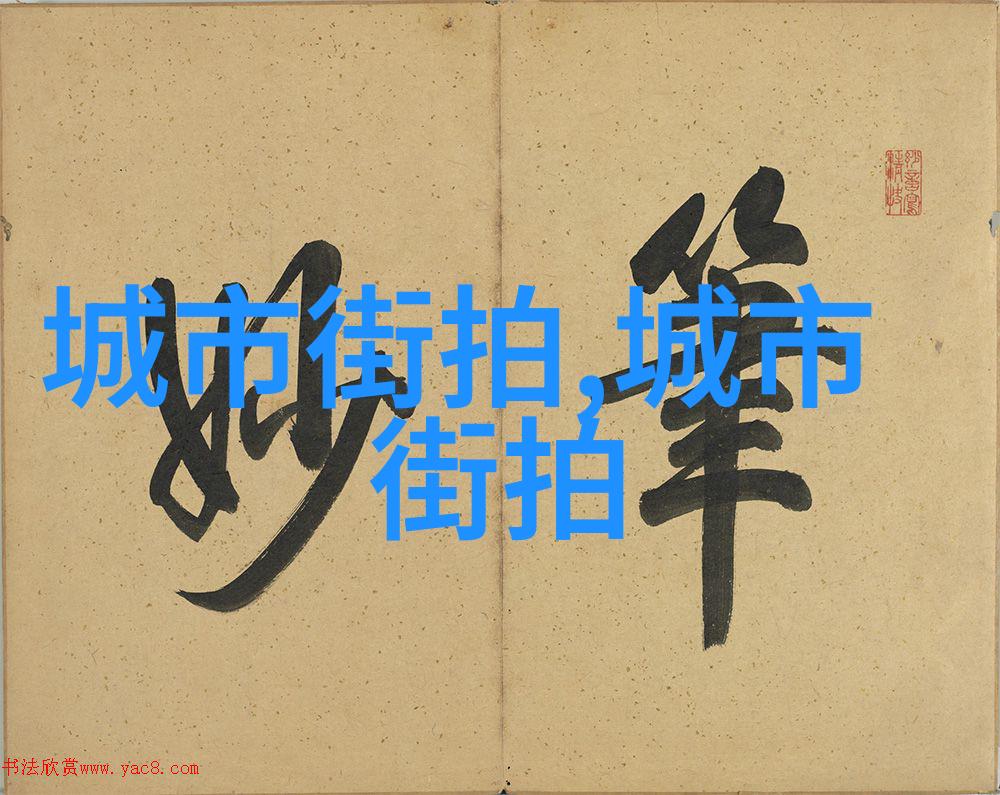 城市街拍,城市
街拍
筆
妙
书法欣赏www.yac8.com